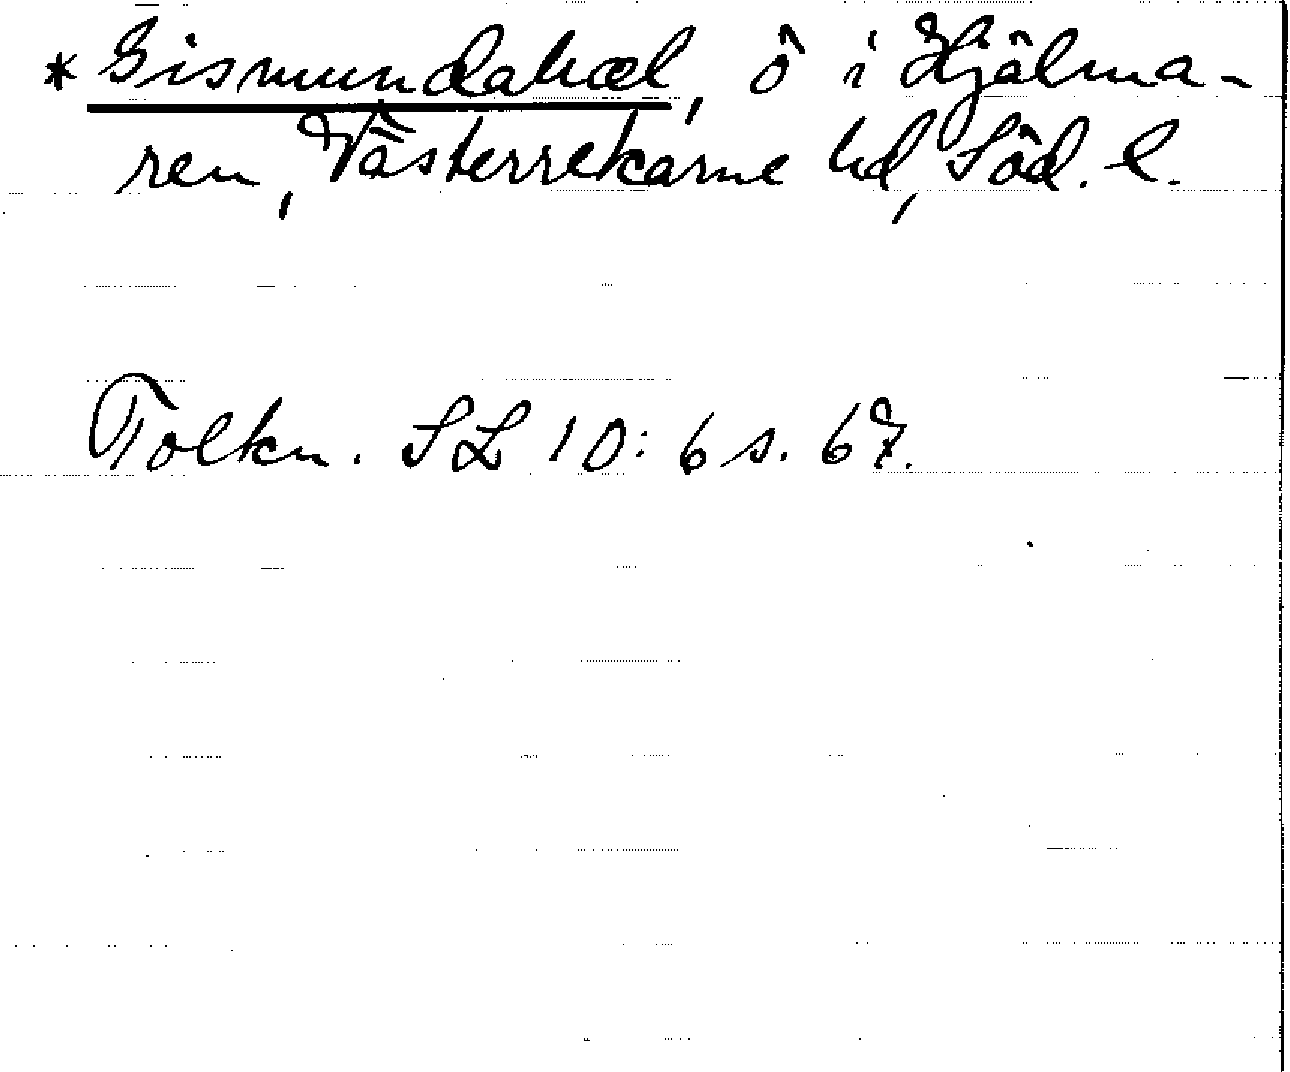 * Gismundahæl, ö i Hjälma-
ren, Västerrekarne hd, Söd. l.
Tolkn. SL 10: 6 s. 67.